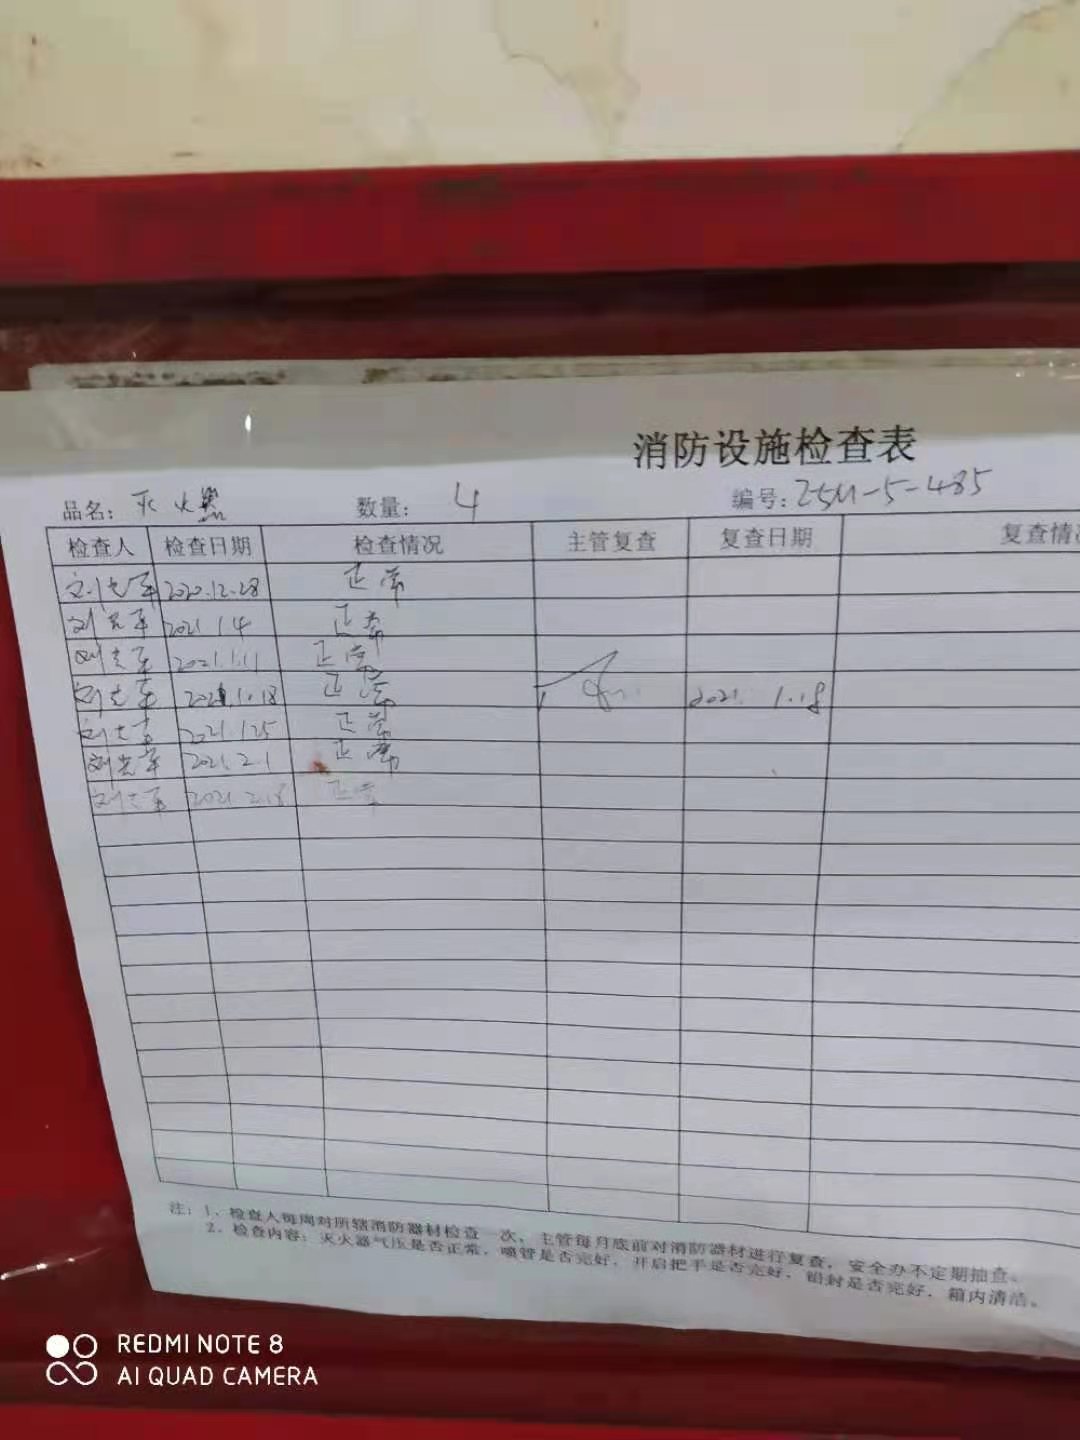 消防设施检查表
品名: 灭火器 数量: 4 编号: ZSM-5-485
检查人 检查日期 检查情况 主管复查 复查日期 复查情
刘志军 2020.12.28 正常
刘志军 2021.1.4 正常
刘志军 2021.1.11 正常
刘志军 2021.1.18 正常 2021. 1.18
刘志军 2021.1.25 正常
刘志军 2021.2.1 正常
刘志军 2021.2.18 正常
注: 1、检查人每周对所辖消防器材检查一次, 主管每月底前对消防器材进行复查, 安全办不定期抽查。
2、检查内容: 灭火器气压是否正常, 喷管是否完好, 开启把手是否完好, 铅封是否完好, 箱内清洁。
REDMI NOTE 8
AI QUAD CAMERA